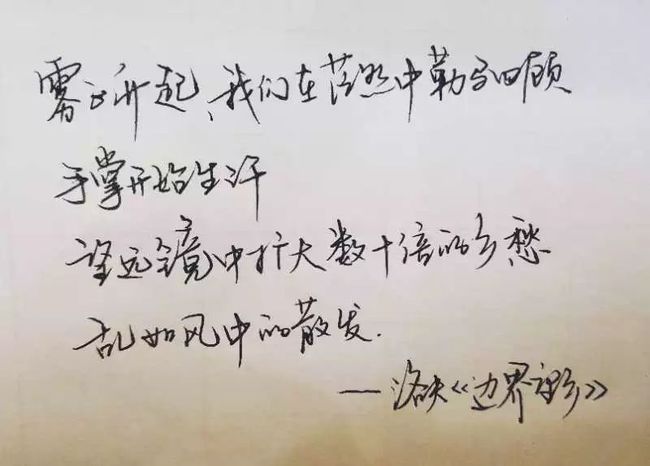 雾正升起、我们在茫然中勒马四顾
手掌开始生汗
望远镜中扩大数十倍的乡愁
乱如风中的散发.
——洛夫《边界望乡》